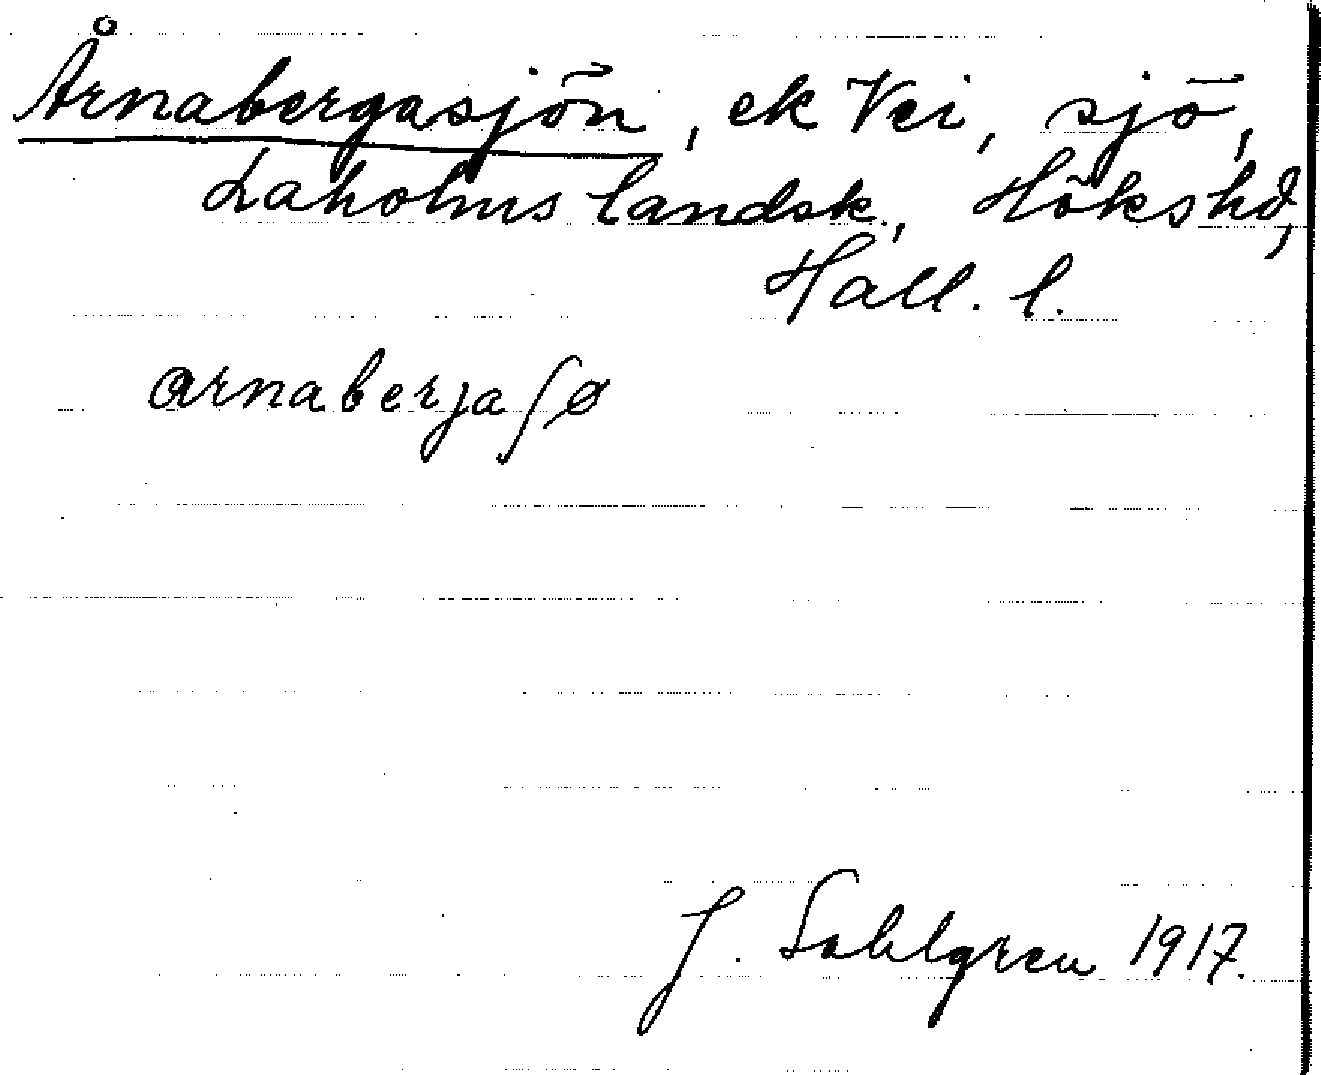 Årnabergasjön, ek Vei, sjö,
Laholms landsk., Höks hd,
Hall. l.
arnaberja ʃø
J. Sahlgren 1917.